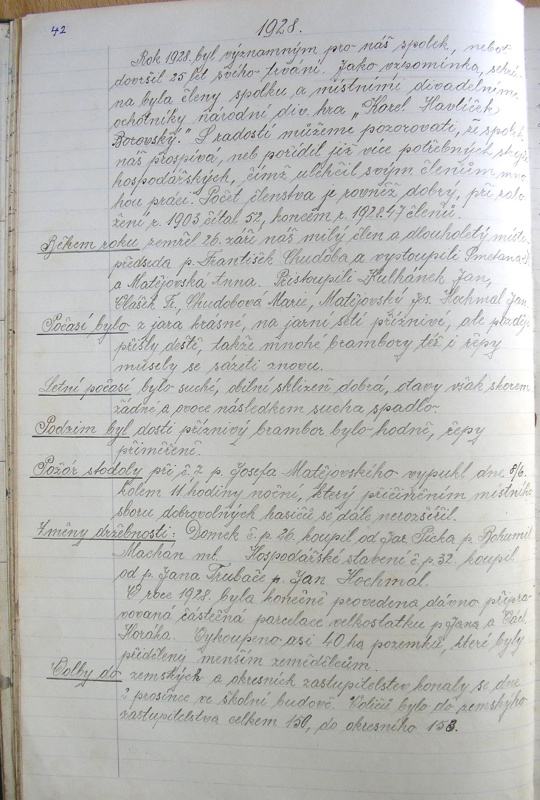 42
1928.
Rok 1928 byl významným pro náš spolek, neboť
dovršil 25 let svého trvání. Jako vzpomínka, sehrá-
na byla členy spolku a místními divadelními
ochotníky národní div. hra „Karel Havlíček
Borovský." S radostí můžeme pozorovati, že spolek
náš prospívá, neb pořídil již více potřebných strojů
hospodářských, čímž ulehčil svým členům mno-
hou práci. Počet členstva je rovněž dobrý, při zalo-
žení r. 1903 čítal 52, koncem r. 1928 47 členů.
Během roku zemřel 26. září náš milý člen a dlouholetý místo-
předseda p. František Chudoba a vystoupili Smetana
a Matějovská Anna. Přistoupili Kulhánek Jan,
Vlášek Fr., Chudobová Marie, Matějovský Jos. Hochmal Jan.
Počasí bylo z jara krásné, na jarní setí příznivé, ale později
přišly deště, takže mnohé brambory též i řepy
musely se sázeti znovu.
Letní počasí bylo suché, obilní sklizeň dobrá, otavy však skorem
žádné a ovoce následkem sucha spadlo.
Podzim byl dosti příznivý brambor bylo hodně, řepy
přiměřeně.
Požár stodoly při č. 7 p. Josefa Matějovského vypukl dne 8/6.
kolem 11 hodiny noční, který přičiněním místního
sboru dobrovolných hasičů se dále nerozšířil.
Změny držebnosti: Domek č. p. 26. koupil od Jar. Picha p. Bohumil
Machan ml. Hospodářské stavení č. p. 32. koupil
od p. Jana Trubače p. Jan Hochmal.
V roce 1928. byla konečně provedena dávno připra-
vovaná částečná parcelace velkostatku p. Jana a Václ.
Horáka. Vykoupeno asi 40 ha pozemků, které byly
přiděleny menším zemědělcům.
Volby do zemských a okresních zastupitelstev konaly se dne
2 prosince ve školní budově. Voličů bylo do zemského
zastupitelstva celkem 150, do okresního 153.